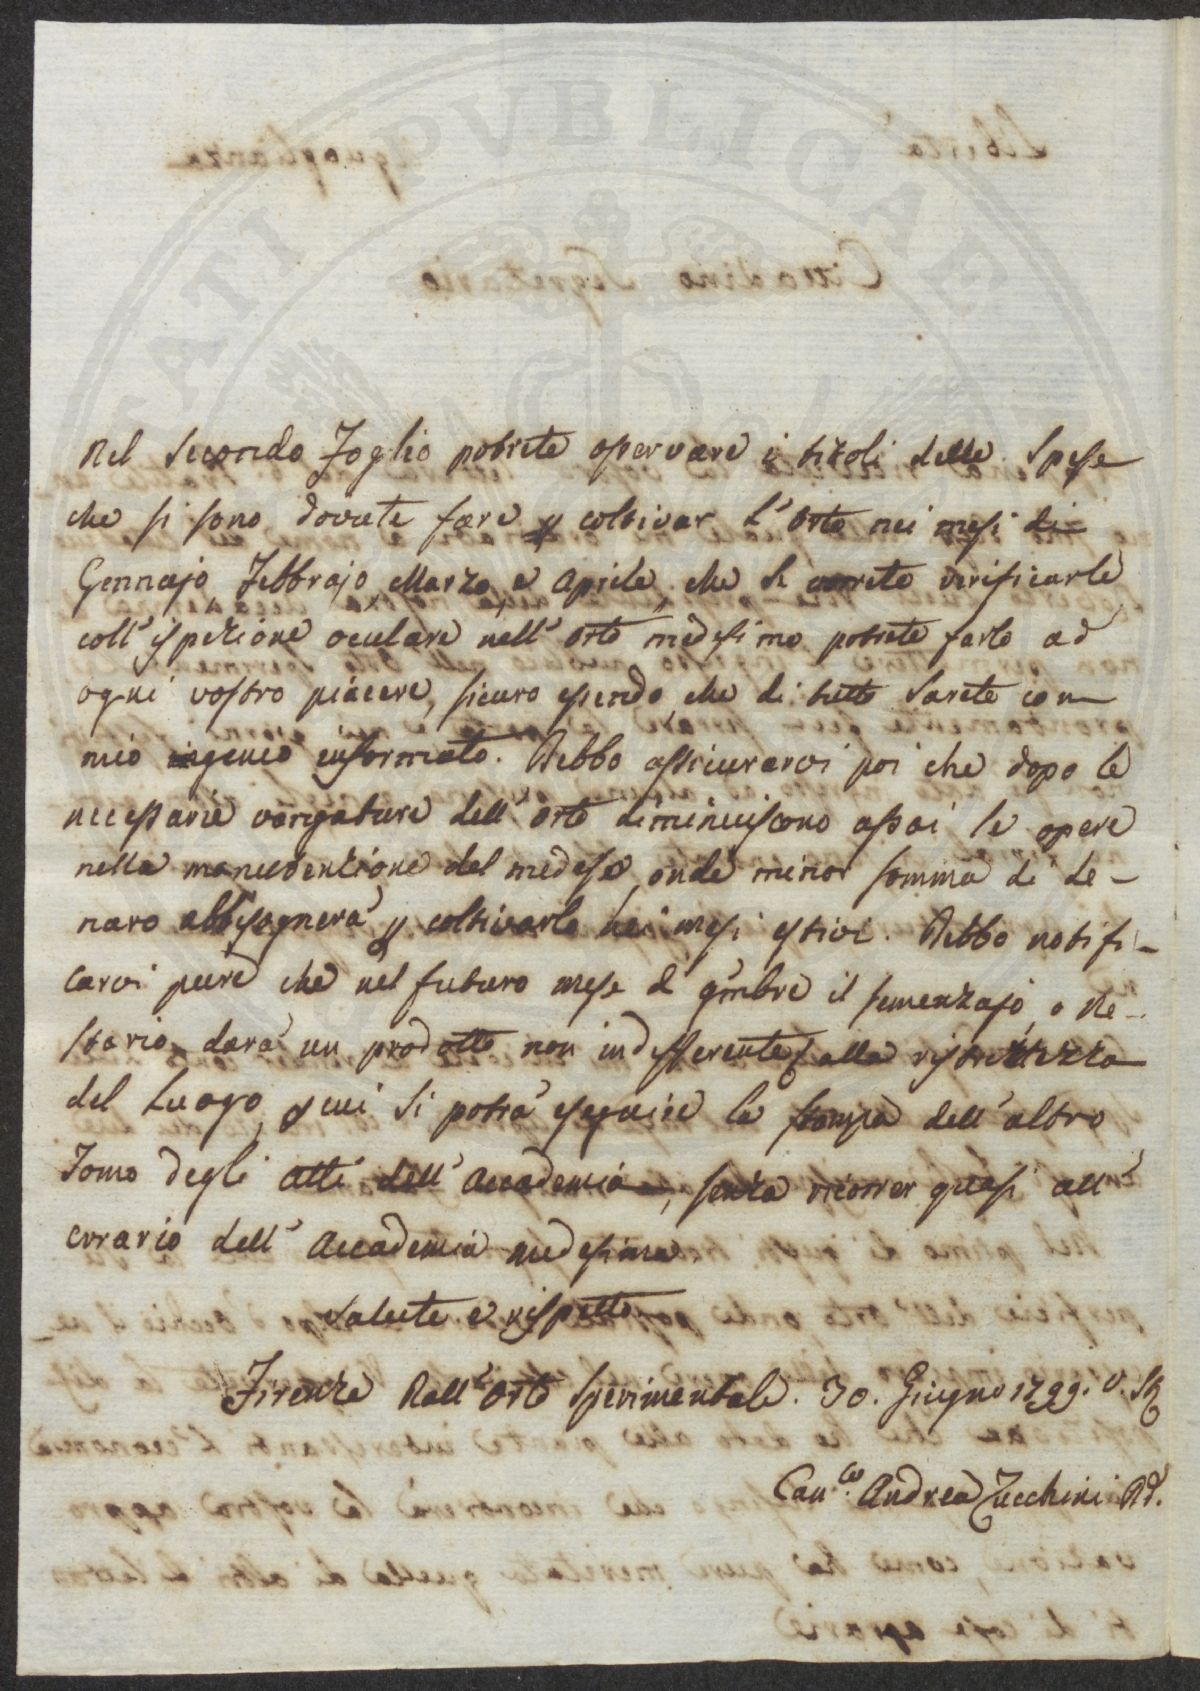 Nel secondo Foglio potrete osservare i titoli delle Spese
che si sono dovute fare p coltivar l'Orto nei mesi di
Gennajo, Febbrajo, Marzo, e Aprile, che se vorrete verificarle
coll'ispezione oculare nell'Orto medesimo potrete farlo ad
ogni vostro piacere, sicuro essendo, che di tutto sarete con
mio ingenuo informato. Debbo assicurarvi poi che dopo le
necessarie vangature dell'Orto diminuiscono assai le opere
nella manutenzione del medeso, onde minor somma di de-
naro abbisognerà p coltivarlo nei mesi estivi. Debbo notifi-
carvi pure che nel futuro mese d 9mbre il semenzajo, o Ne-
stario darà un prodotto non indifferente alla ristrettezza
del Luogo, p cui si potrà eseguire la stampa dell'altro
Tomo degli Atti dell'Accademia, senza ricorrer quasi all'
erario dell'Accademia medesima.
Salute e rispetto
Firenze Dall'Orto Sperimentale. 30. Giugno 1799. v. s.
Can.co Andrea Zucchini Dd.